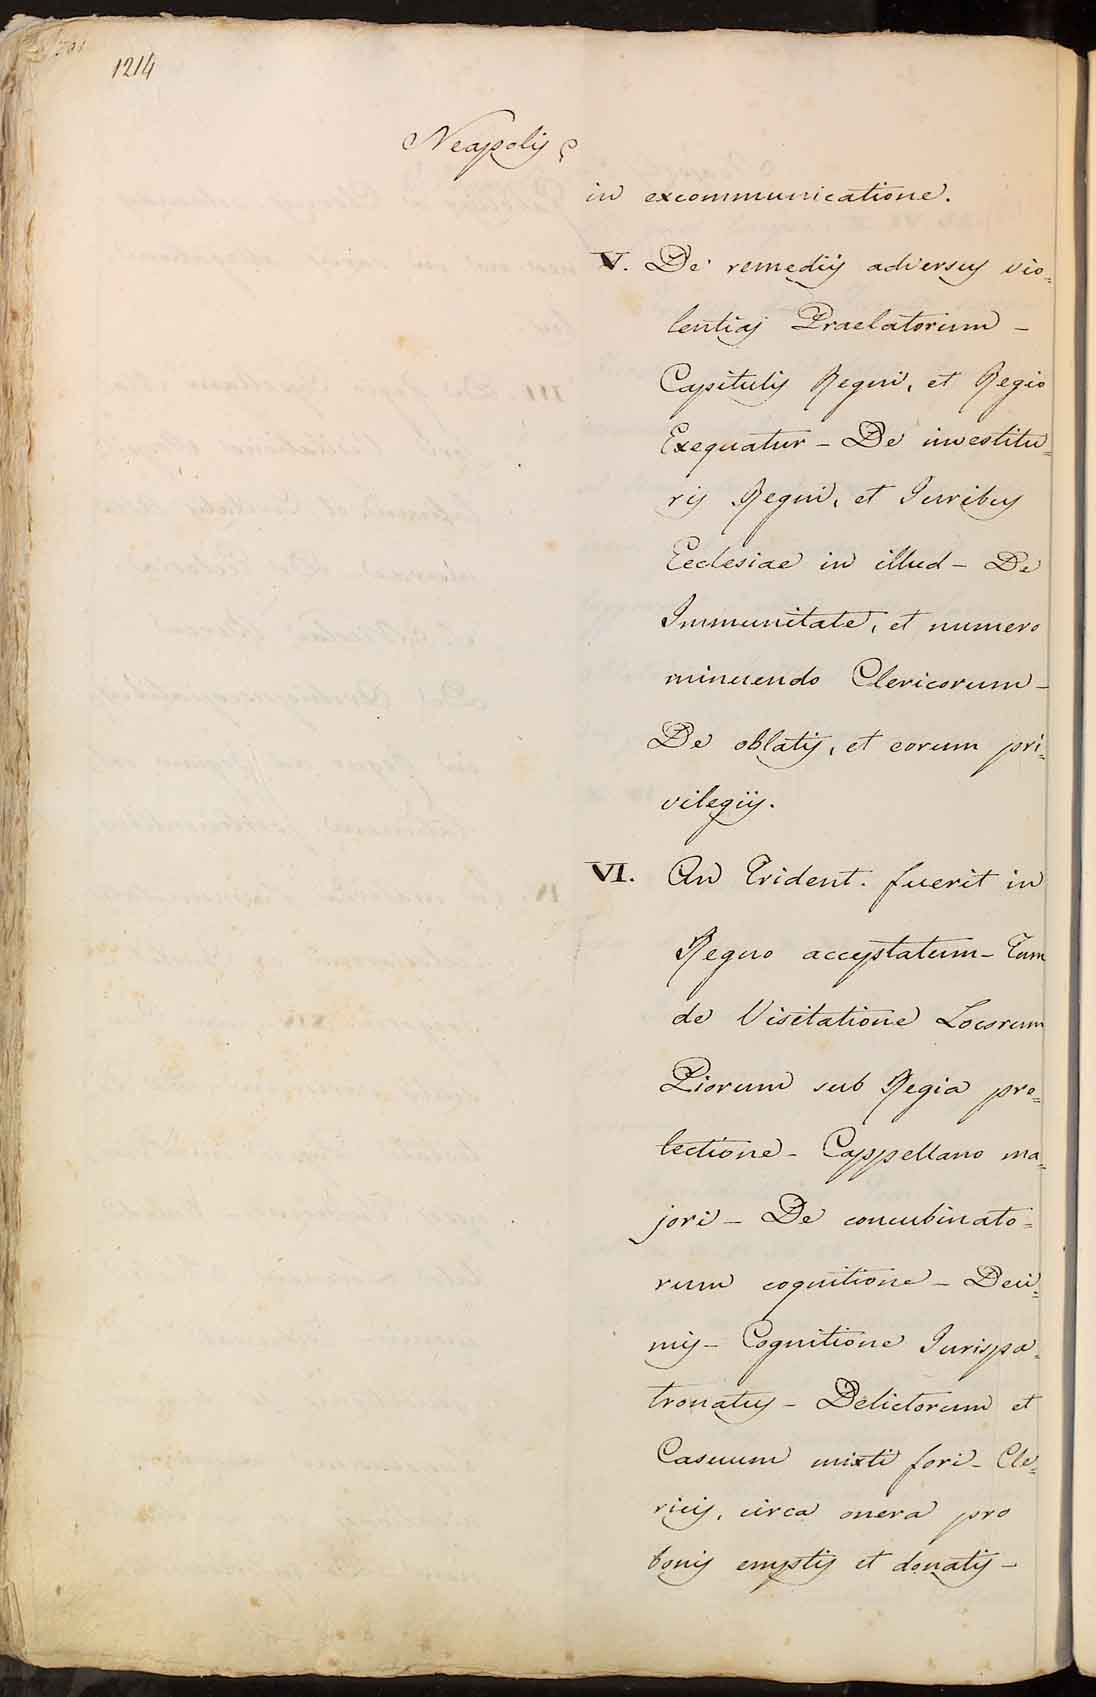 1214
Neapolis
in excommunicatione.
V. De remediis adversus vio=
lentias Praelatorum –
Capitulis Regni, et Regio
Exequatur – De investitu=
ris Regni, et Juribus
Ecclesiae in illud – De
Immunitate, et numero
minuendo Clericorum –
De oblatis, et eorum pri=
vilegiis.
VI. An Trident. fuerit in
Regno acceptatum – Tum
de Visitatione Locorum
Piorum sub Regia pro=
tectione – Cappellano ma=
jori – De concubinato=
rum cognitione – Deci=
mis – Cognitione Jurispa=
tronatus – Delictorum et
Casuum mixti fori – Cle=
ricis, circa onera pro
bonis emptis et donatis –